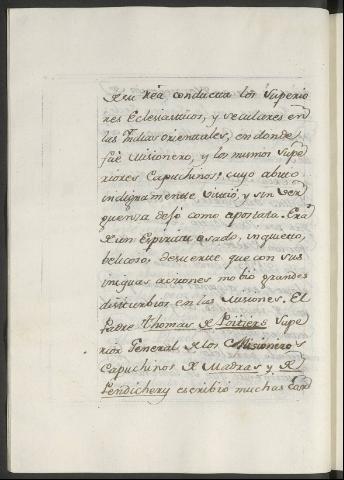 de su rèa conducta los Superio
res Eclesiasticos, y seculares en
las Indias orientales, en donde
fuè Misionero, y los mismos Supe
riores Capuchinos; cuyo abito
indignamente vistiò, y sin ver
guenza dejò como apostata. Erà
de un Espiritu osado, inquieto,
belicoso; desuerte que con sus
iniquas acciones moviò grandes
disturbios en las Misiones. El
Padre Thomas de Poitiers Supe
rior General de los Misioneros
Capuchinos de Madras y de
Pendichery escribiò muchas